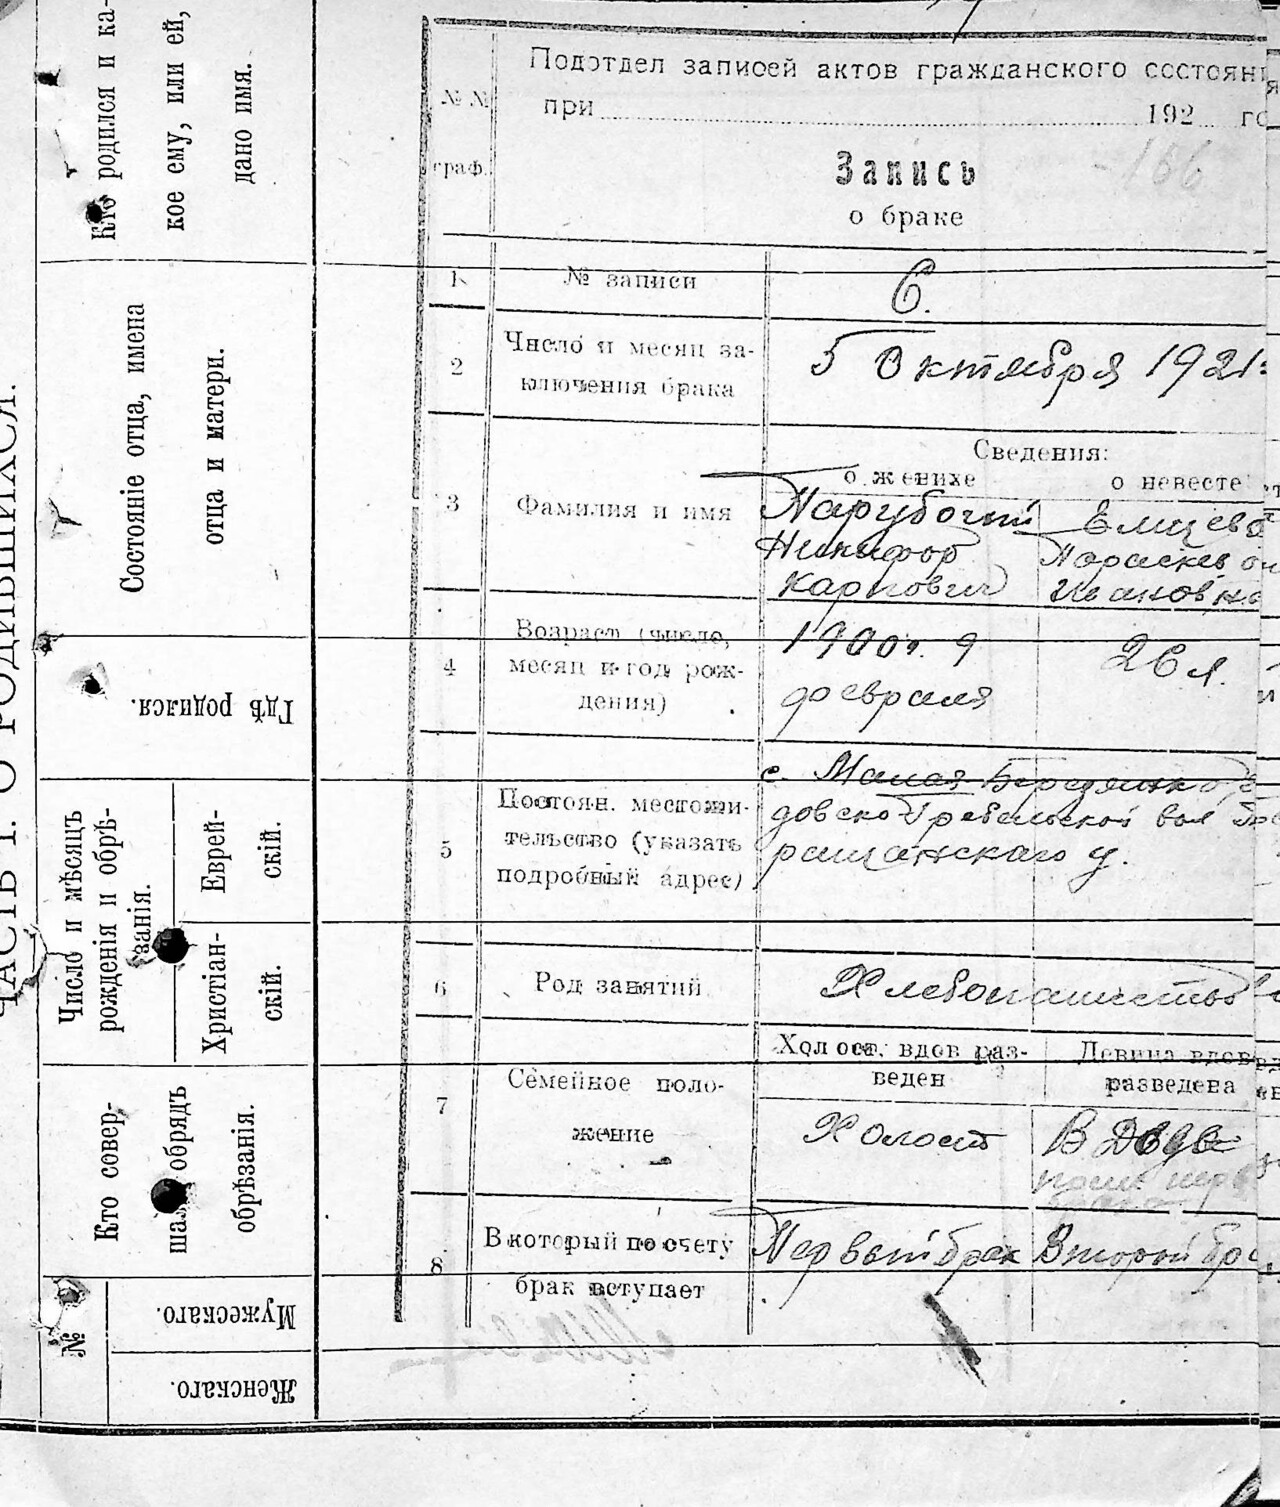 Кто родился и ка-
кое ему, или ей,
дано имя.
Состояніе отца, имена
отца и матери.
Гдѣ родился.
Число и мѣсяцъ
рожденія и обрѣ-
занія.
Еврей-
скій.
Христіан-
скій.
Кто совер-
обрядъ
обрѣзанія.
№
Мужескаго.
Женскаго.
ЧАСТЬ I. О РОДИВШИХСЯ.
№ №
граф.
Подотдел записей актов гражданского состояни
при 192 го
166
Запись
о браке
1
№ записи
6.
2
Число и месяц за-
ключения брака
5 Октября 1921
Сведения:
о женихе
о невесте
3
Фамилия и имя
Парубочий
Никифор
Карпович
Параскев
Ивановна
4
Возраст (число,
месяц и год рож-
дения)
1900 г. 9
февраля
26 л.
5
Постоян. местожи-
тельство (указать
подробный адрес)
с. Малая Березянка
Гребельской вол
ращанскаго у.
6
Род занятий
Хлебопашество
7
Семейное поло-
жение
Холост, вдов раз-
веден
Девица вдова
разведена
Холост
Вдова
после перв
брака
8
В который по счету
брак вступает
Первый брак
Второй бра